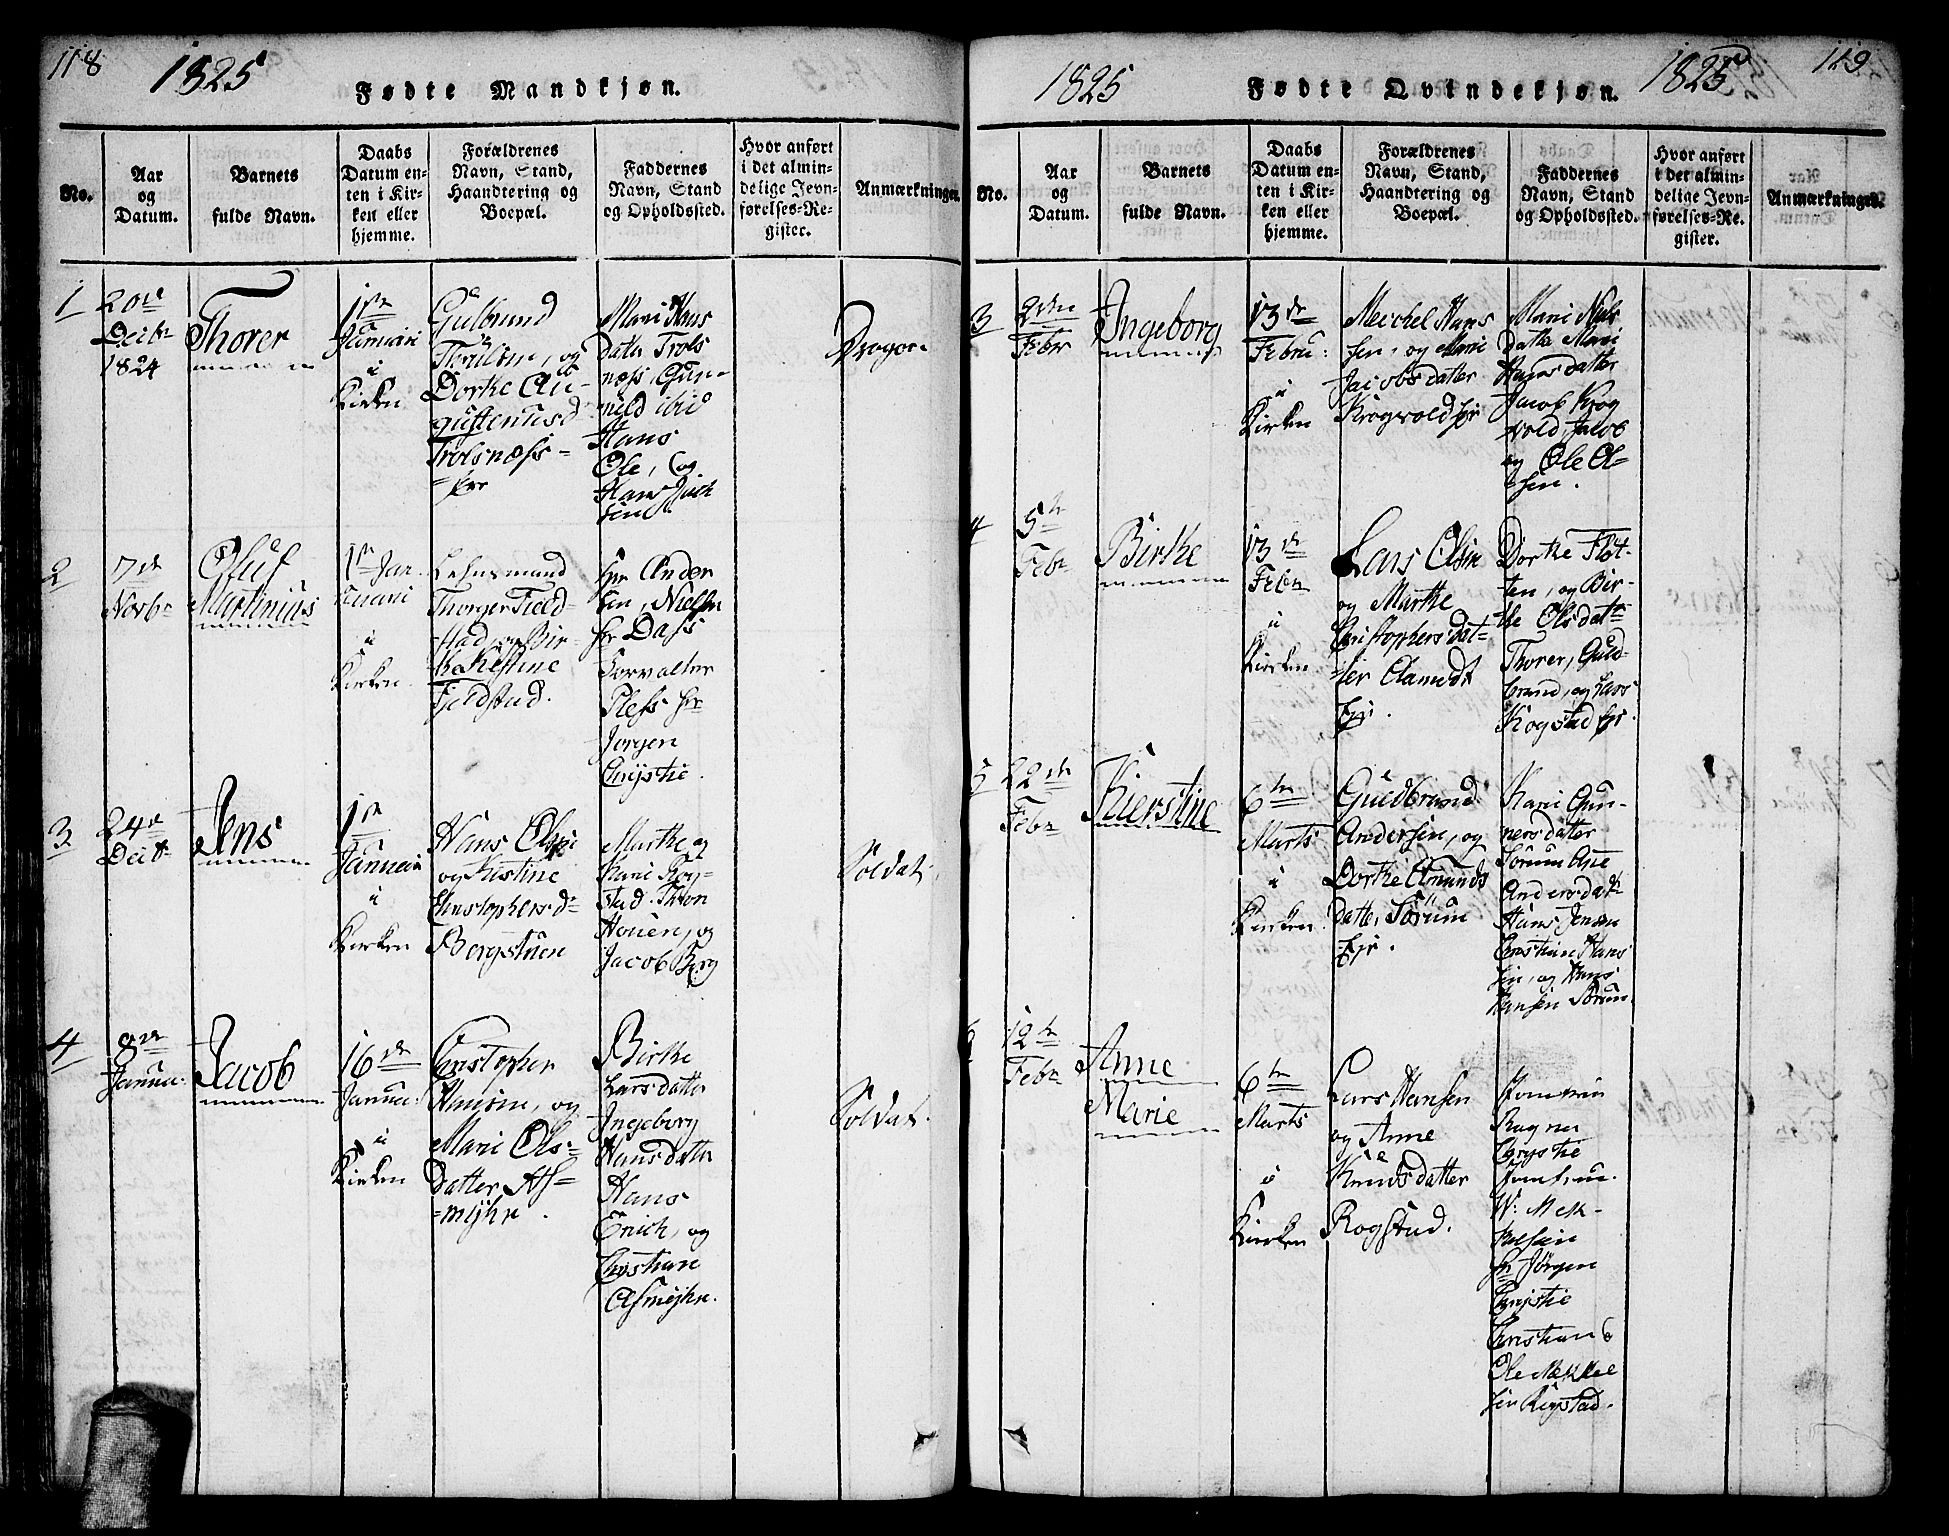 118
1825
Fødte Mandkjøn.
No.
Aar
og
Datum.
Barnets
fulde Navn.
Daabs
Datum en-
ten i Kir-
ken eller
hjemme.
Forældrenes
Navn, Stand,
Haandtering og
Boepæl.
Faddernes
Navn, Stand
og Opholdssted.
Hvor anført
i det almin-
delige Jevn-
førelses-Re-
gister.
Anmærkninger.
1
20de
Decbr
1824
Thorer
1ste
Januari
i
Kirken
Gulbrand
og
Dorthe Au-
gustenusd
Trolsnæss
Mari Hans
datter Trols
næss, Gun-
nild ibid
Hans
Ole, og
Hans
Dragon
2
7de
Novbr
Oluf
Martinius
1ste Jan-
nuari
i
Kirken
Lehnsmand
Thorger Field-
stad, og Bir-
the Kistine
Fjeldstad.
Hr Ander
sen, Nielsen
Hr Dass
Forvalter
Pless Hr
Jørgen
Chrystie.
3
24de
Decb
Jens
1ste
Januari
i
Kirken
Hans Olsen
og Kistine
Christophersd
Bergstuen
Marthe og
Karie Rog-
stad. Thron
Houen, og
Jacob Berg
Soldat.
4
8de
Janua:
Jacob
16de
Janua:
i
Kirken
Christopher
Hansen, og
Marie Ols-
datter As-
=mijhr.
Birthe
Larsdatter
Ingeborg
Hansdatter
Hans
Erich, og
Christian
Asmijhr.
Soldat.
1825
Fødte Qvindekjøn.
1825
119
No.
Aar
og
Datum.
Barnets
fulde Navn.
Daabs
Datum en-
ten i Kir-
ken eller
hjemme.
Forældrenes
Navn, Stand,
Haandtering og
Boepæl.
Faddernes
Navn, Stand
og Opholdssted.
Hvor anført
i det almin-
delige Jevn-
førelses-Re-
gister.
Anmærkninger.
3
2den
Febr
Ingeborg
13de
Febru:
i
Kirken
Mechel Hans
sen, og Marie
Jacobsdatter
Krogvold
Mari Niels
datter Mari
Hansdatter
Jacob Krog
vold, Jacob
og Ole Ol-
sen.
4
5te
Febr
Birthe
13de
Febr
i
Kirken
Lars Olsen
og Marthe
Christophersdat-
ter
Ejr.
Dorthe Flot-
ten, og Bir-
the Olsdatr
Thorer, Guld-
brand, og Lars
Rogstad
5
22de
Febr
Kierstine
6te
Marts
i
Kirken
Guldbrand
Andersen, og
Dorthe Amunds
datter Sørum
Ejr.
Kari Gun-
nersdatter
Sørum Ane
Andersdatr
Hans Jensen
Christian Hans
sen, og Hans
Hansen Sørum.
6
12te
Febr
Anne
Marie
6te
Marts
i
Kirken
Lars Hansen
og Anne
Knudsdatter
Rogstad.
Jomfru
Ragna
Chrystie
Jomfru
Hr Jørgen
Chrystie
Christian &
Ole Mekkel
sen Rogstad.